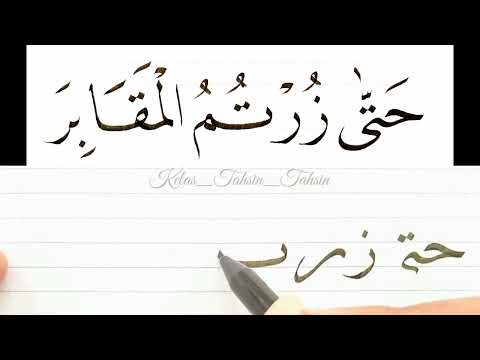 حَتّٰى زُرْتُمُ الْمَقَابِرَ
Kelas_Tahsin_Tahsin
حتـ زر